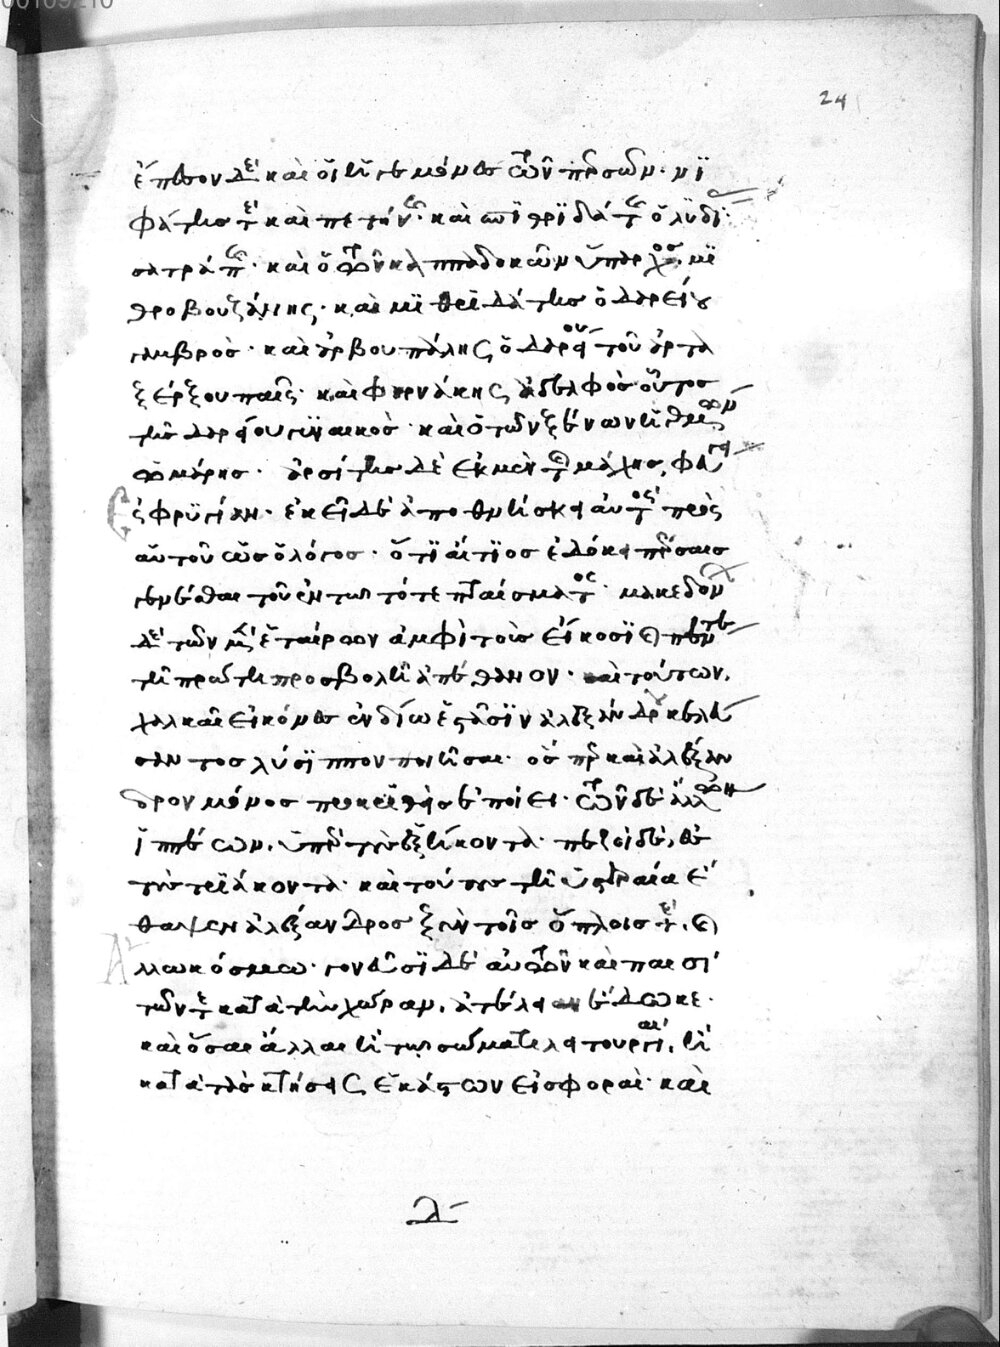 24
ἔπεσον δὲ καὶ οἱ ἡγεμόνες τῶν περσῶν. νι
φάτης τὲ καὶ πετήνης. καὶ σπιθριδάτης ὁ λυδί
σατράπης. καὶ ὁ τῶν καππαδοκῶν ὕπαρχος μι
θροβουζάνης. καὶ μιθριδάτης ὁ δαρείου
γαμβρός. καὶ ἀρβουπάλης ὁ δαρείου τοῦ ἀρτα
ξέρξου παῖς. καὶ φαρνάκης ἀδελφὸς οὗτος
τῆς δαρείου γυναικός. καὶ ὁ τῶν ξένων ἡγεμὼν
ὠμάρης. ἀρσίτης δὲ ἐκ μὲν τῆς μάχης φεύγει
ἐς φρυγίαν. ἐκεῖ δὲ ἀποθνήσκει αὐτὸς πρὸς
αὑτοῦ ὡς ὁ λόγος. ὅτι αἴτιος ἐδόκει πέρσαις
γενέσθαι τοῦ ἐν τῶ τότε πταίσματος. μακεδόνων
δὲ τῶν μὲν ἑταίρων ἀμφὶ τοὺς εἴκοσι καὶ πέντε
τῆ πρώτη προσβολῆ ἀπέθανον. καὶ τούτων
χαλκαῖ εἰκόνες ἐν δίω ἑστᾶσιν ἀλεξάνδρου κελεύ
σαντος λύσιππον ποιῆσαι. ὃς περ καὶ ἀλέξαν
δρον μόνος προκριθεὶς ἐποίει. τῶν δὲ ἄλλων
ἱππέων, ὑπὲρ τοὺς ἑξήκοντα. πεζοὶ δὲ, ἐς
τοὺς τριάκοντα. καὶ τούτους τῆ ὑστεραία ἔ
θαψεν ἀλέξανδρος ξὺν τοῖς ὅπλοις τὲ, καὶ
ἄλλω κόσμω. γονεῦσι δὲ αὐτῶν καὶ παισὶ
τῶν τὲ κατὰ τὴν χώραν, ἀτέλειαν ἔδωκε.
καὶ ὅσαι ἄλλαι ἢ τῶ σώματι λειτουργίαι, ἢ
κατὰ τὰς κτήσεις ἑκάστων εἰσφοραί. καὶ